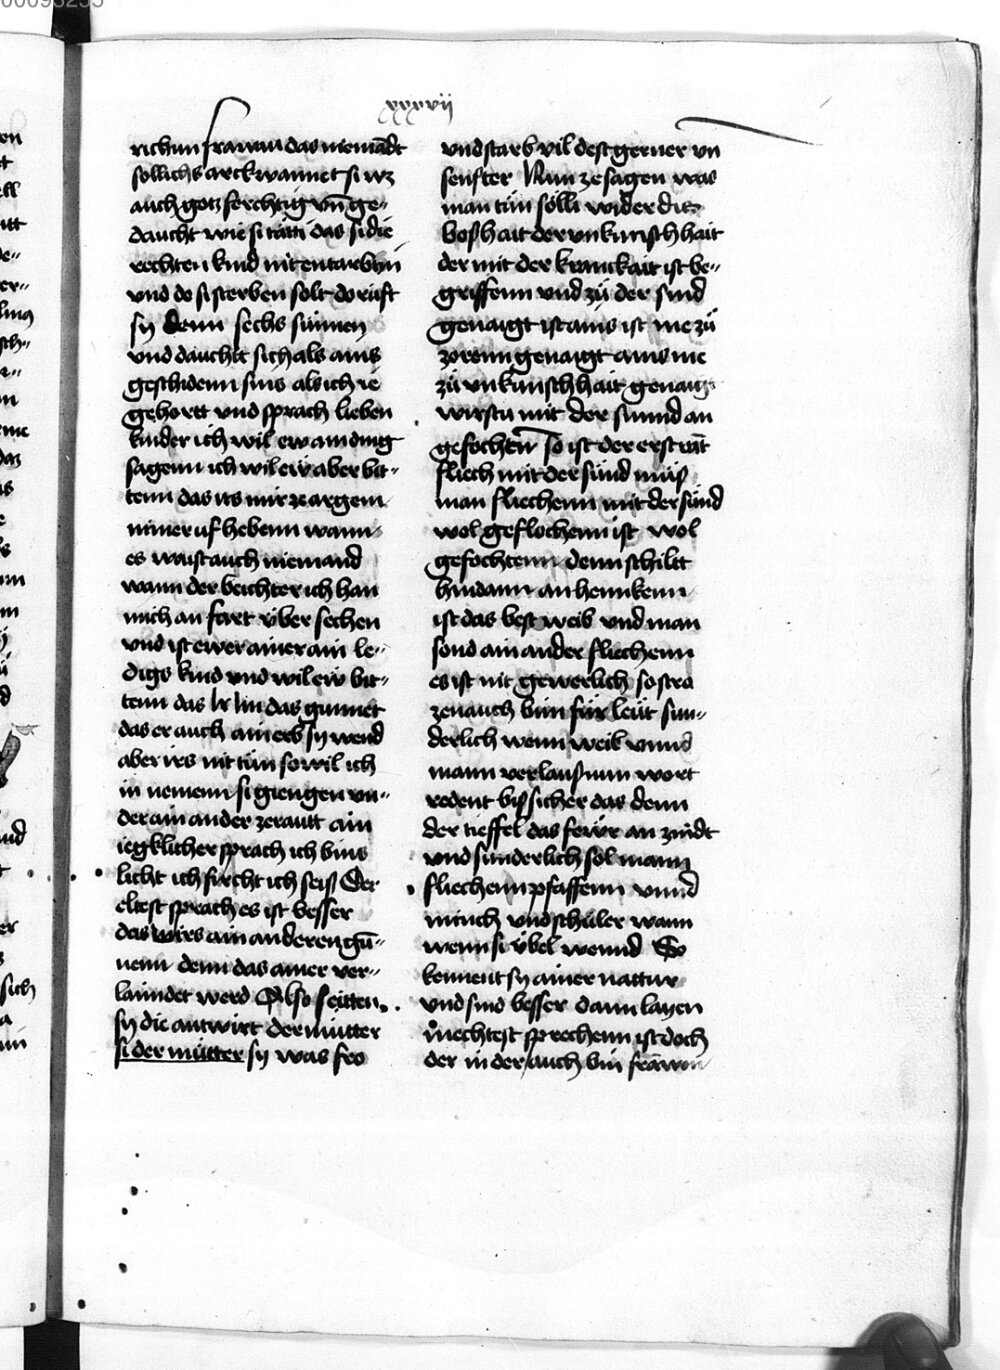 xxxvii
richun frawan das niemãdt
söllichs arckwannet si wz
auch gotz forchtig vñ ge-
daucht wie si tätti das si die
rechten kind nit entarbtin
und do si sterben solt do rüft
sy denn sechs sünnen
und daucht sich als ains
geschidenn sins als ich ie
gehortt und sprach lieben
kinder ich wil ew ain ding
sagenn ich wil eiw aber bit-
tenn das irs mir ze argem
nimer uf hebenn wann
es waist auch niemand
wann der beichter ich han
mich an fart über sechen
und ist ewer ainer ain le-
digs kind und wil eiw bit-
tenn das ir im das gunnet
das er auch ain erb sy wend
aber irs nit tün so wil ich
in nemenn si giengen vn-
der ain ander ze rautt ain
iegklicher sprach ich bins
licht ich fürcht ich seiß Der
eltest sprach es ist besser
das wirs ain anderen gü-
nenn denn das ainer ver-
laimdet werd Also seitten
sy die antwirt der mütter
si der mütter sy was fro
und starb vil dest gerner vn
senfter Nun ze sagen was
man tün sölli wider die
boshait der vnkunschhait
der mit der kranckait ist be-
griffenn und zü der sind
genaigt ist ains ist me zü
zorenn genaigt ains me
zü vnkünschhait genaig
wirstu mit der sunnd an
gefochten so ist der erst rät
fliech mit der sünd müß
man fliechenn mit der sünd
wol geflochenn ist wol
gefochtenn denn schiltt
hindann an henckenn
ist das best weib und man
sond ain ander fliechenn
es ist nit gewerlich so stra
ze nauch bün für leüt sun-
derlich wenn weib vnnd
mann verlaußnin wort
redent biß sicher das denn
der tieffel das feiwr an zündt
und sunderlich sol mann
fliechenn pfaffenn vnnd
münch und schüler wann
wenn si übel wennd So
kennent sy ainer nattur
und sind besser dann layen
mechtest sprechenn ist doch
der in der auch bin